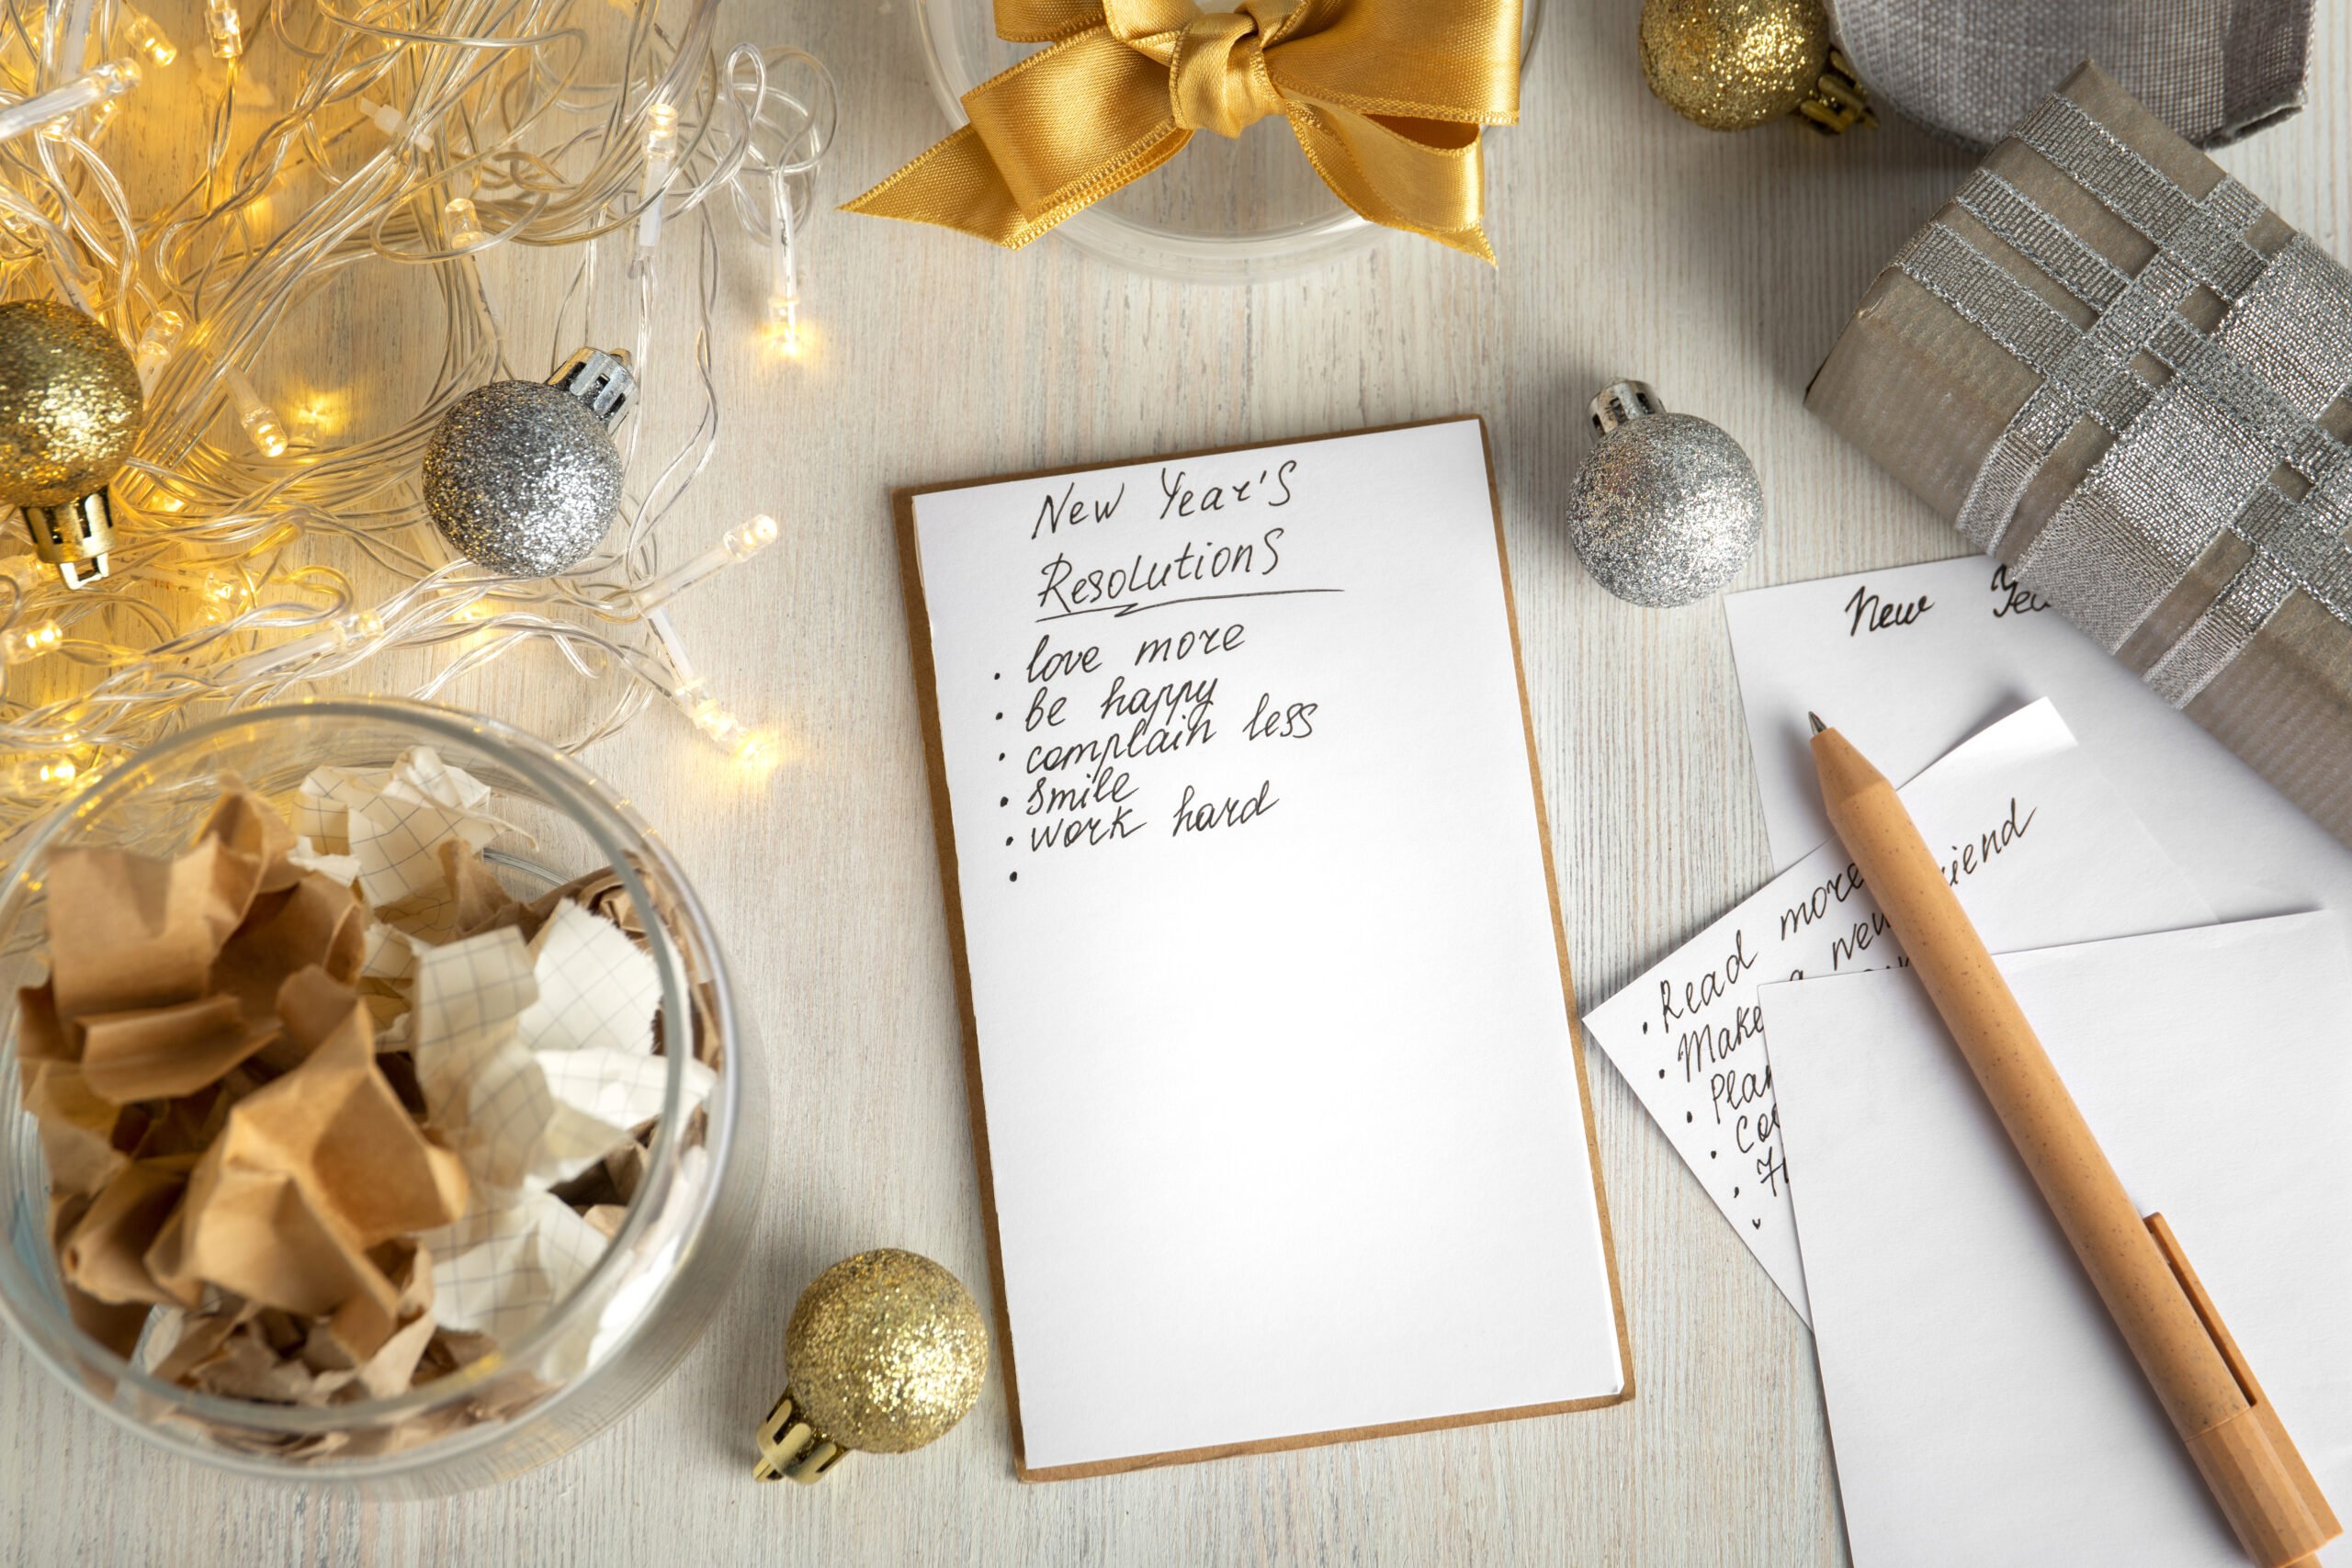 New Year's
Resolutions
· love more
· be happy
· complain less
· smile
· work hard
·
New
· Read more
· Make a new
·
·
·